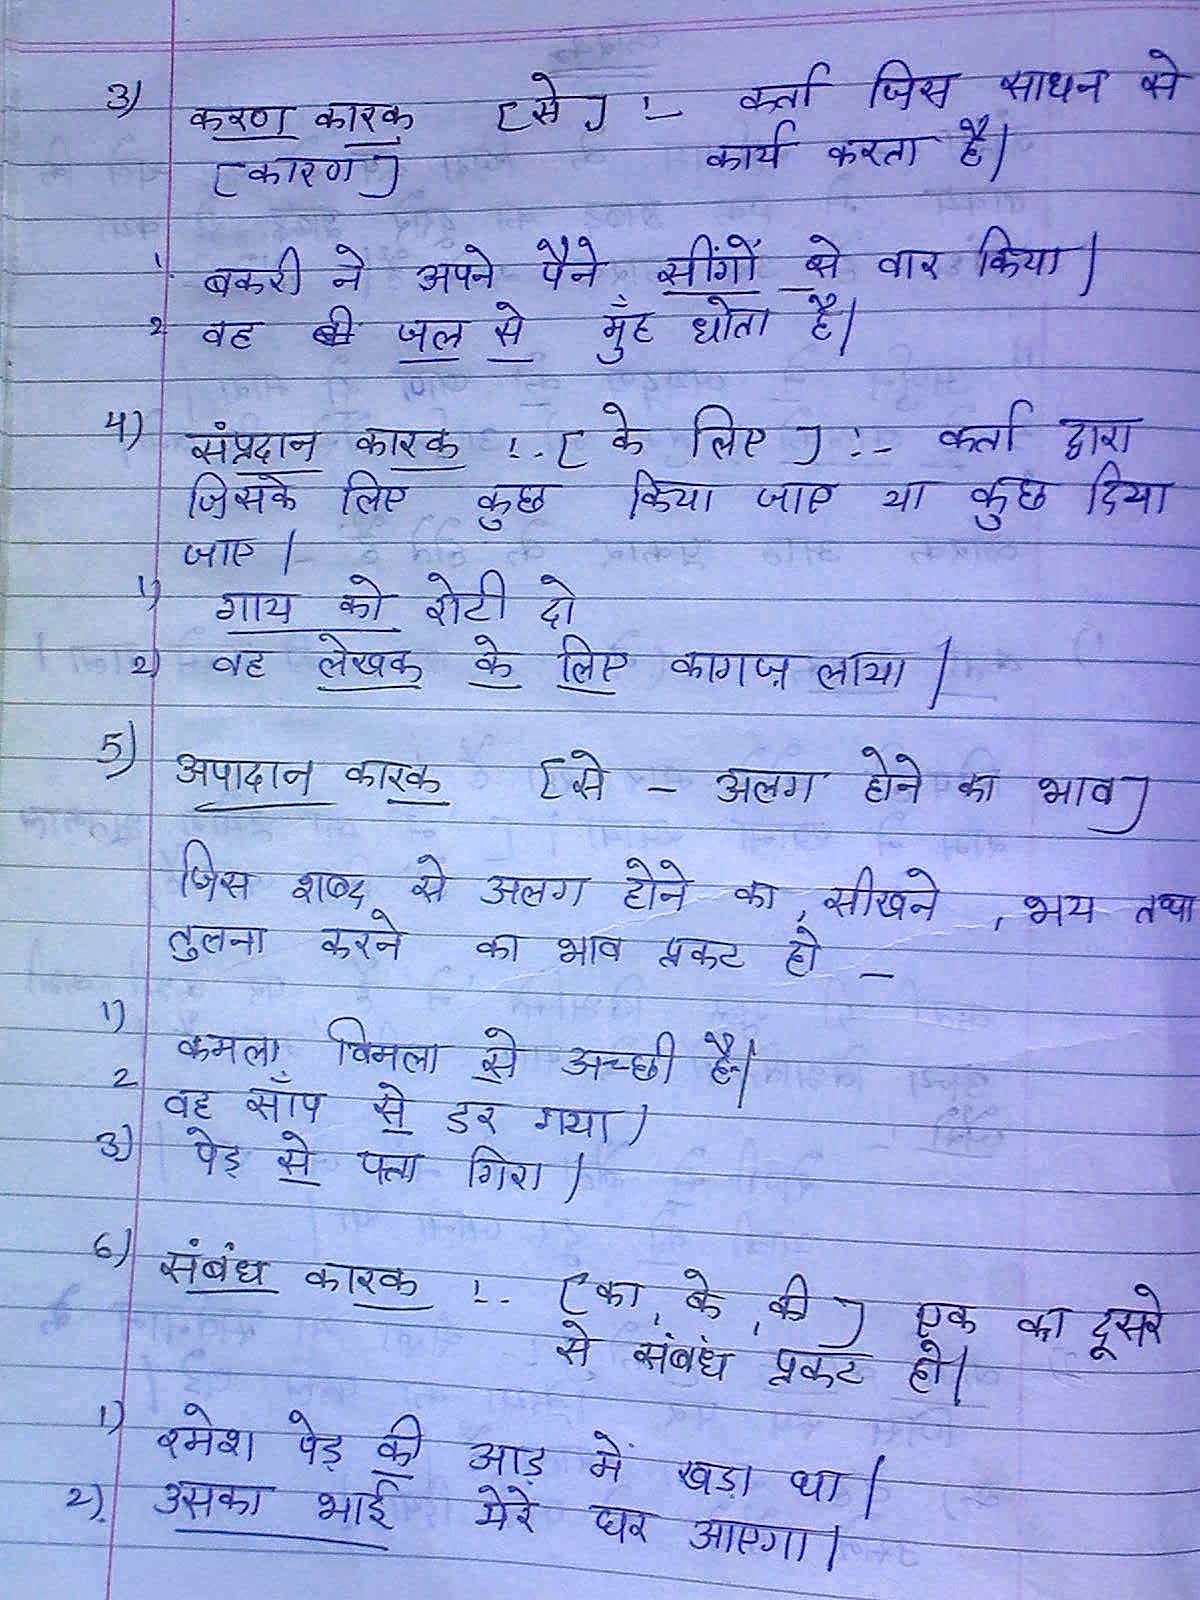 3) करण कारक [से] :- कर्ता जिस साधन से
[कारण] कार्य करता है।
1. बकरी ने अपने पैने सींगों से वार किया।
2 वह जल से मुँह धोता है।
4) संप्रदान कारक :- [के लिए] :- कर्ता द्वारा
जिसके लिए कुछ किया जाए या कुछ दिया
जाए।
1) गाय को रोटी दो
2) वह लेखक के लिए कागज़ लाया।
5) अपादान कारक [से - अलग होने का भाव]
जिस शब्द से अलग होने का, सीखने, भय तथा
तुलना करने का भाव प्रकट हो -
1) कमला विमला से अच्छी है।
2 वह साँप से डर गया।
3) पेड़ से पत्ता गिरा।
6) संबंध कारक :- [का, के, की] एक का दूसरे
से संबंध प्रकट हो।
1) रमेश पेड़ की आड़ में खड़ा था।
2) उसका भाई मेरे घर आएगा।